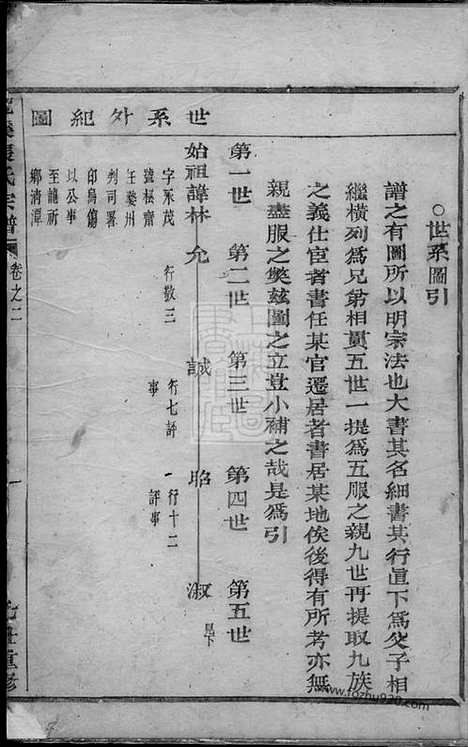 ○世系圖引
譜之有圖所以明宗法也大書其名細書其行直下爲父子相
繼橫列爲兄弟相貫五世一提爲五服之親九世再提取九族
之義仕宦者書任某官遷居者書居某地俟後得有所考亦無
親盡服之獘茲圖之立豈小補之哉是爲引
世系外紀圖
第一世 第二世 第三世 第四世 第五世
始祖諱林 允 誠 昭 淑 見下
字永茂
號松齋
任婺州
判司署
印烏傷
以公事
至龍祈
鄉清潭
行敬三
行七評
事
行十二
評事
氏宗譜
卷之二
一
重修
www.fozhu920.com